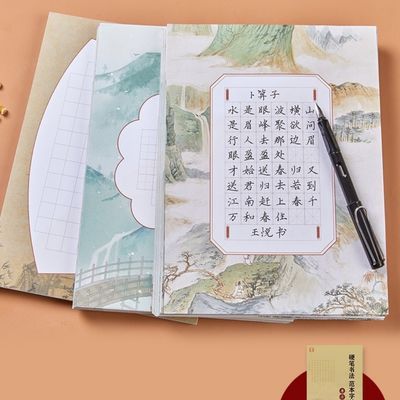 卜算子
水是眼波横山
是眉峰聚欲问
行人去那边眉
眼盈盈处
才始送春归又
送君归去若到
江南赶上春千
万和春住
王悦书
硬笔书法 范本字